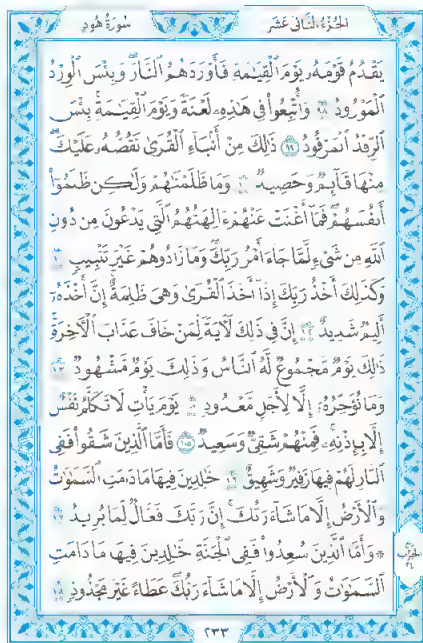 الجزء الثاني عشر
سورة هود
يَقْدُمُ قَوْمَهُ يَوْمَ الْقِيَامَةِ فَأَوْرَدَهُمُ النَّارَ وَبِئْسَ الْوِرْدُ
الْمَوْرُودُ ٩٨ وَأُتْبِعُوا فِي هَٰذِهِ لَعْنَةً وَيَوْمَ الْقِيَامَةِ بِئْسَ
الرِّفْدُ الْمَرْفُودُ ٩٩ ذَٰلِكَ مِنْ أَنبَاءِ الْقُرَىٰ نَقُصُّهُ عَلَيْكَ
مِنْهَا قَائِمٌ وَحَصِيدٌ ١٠٠ وَمَا ظَلَمْنَاهُمْ وَلَٰكِن ظَلَمُوا
أَنفُسَهُمْ فَمَا أَغْنَتْ عَنْهُمْ آلِهَتُهُمُ الَّتِي يَدْعُونَ مِن دُونِ
اللَّهِ مِن شَيْءٍ لَّمَّا جَاءَ أَمْرُ رَبِّكَ وَمَا زَادُوهُمْ غَيْرَ تَتْبِيبٍ ١٠١
وَكَذَٰلِكَ أَخْذُ رَبِّكَ إِذَا أَخَذَ الْقُرَىٰ وَهِيَ ظَالِمَةٌ إِنَّ أَخْذَهُ
أَلِيمٌ شَدِيدٌ ١٠٢ إِنَّ فِي ذَٰلِكَ لَآيَةً لِّمَنْ خَافَ عَذَابَ الْآخِرَةِ
ذَٰلِكَ يَوْمٌ مَّجْمُوعٌ لَّهُ النَّاسُ وَذَٰلِكَ يَوْمٌ مَّشْهُودٌ ١٠٣
وَمَا نُؤَخِّرُهُ إِلَّا لِأَجَلٍ مَّعْدُودٍ ١٠٤ يَوْمَ يَأْتِ لَا تَكَلَّمُ نَفْسٌ
إِلَّا بِإِذْنِهِ فَمِنْهُمْ شَقِيٌّ وَسَعِيدٌ ١٠٥ فَأَمَّا الَّذِينَ شَقُوا فَفِي
النَّارِ لَهُمْ فِيهَا زَفِيرٌ وَشَهِيقٌ ١٠٦ خَالِدِينَ فِيهَا مَا دَامَتِ السَّمَاوَاتُ
وَالْأَرْضُ إِلَّا مَا شَاءَ رَبُّكَ إِنَّ رَبَّكَ فَعَّالٌ لِّمَا يُرِيدُ ١٠٧
۞ وَأَمَّا الَّذِينَ سُعِدُوا فَفِي الْجَنَّةِ خَالِدِينَ فِيهَا مَا دَامَتِ
السَّمَاوَاتُ وَالْأَرْضُ إِلَّا مَا شَاءَ رَبُّكَ عَطَاءً غَيْرَ مَجْذُوذٍ ١٠٨
٢٣٣